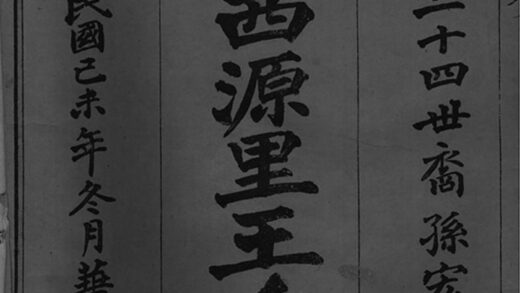 二十四世裔孫宏
西源里王
民國己未年冬月華